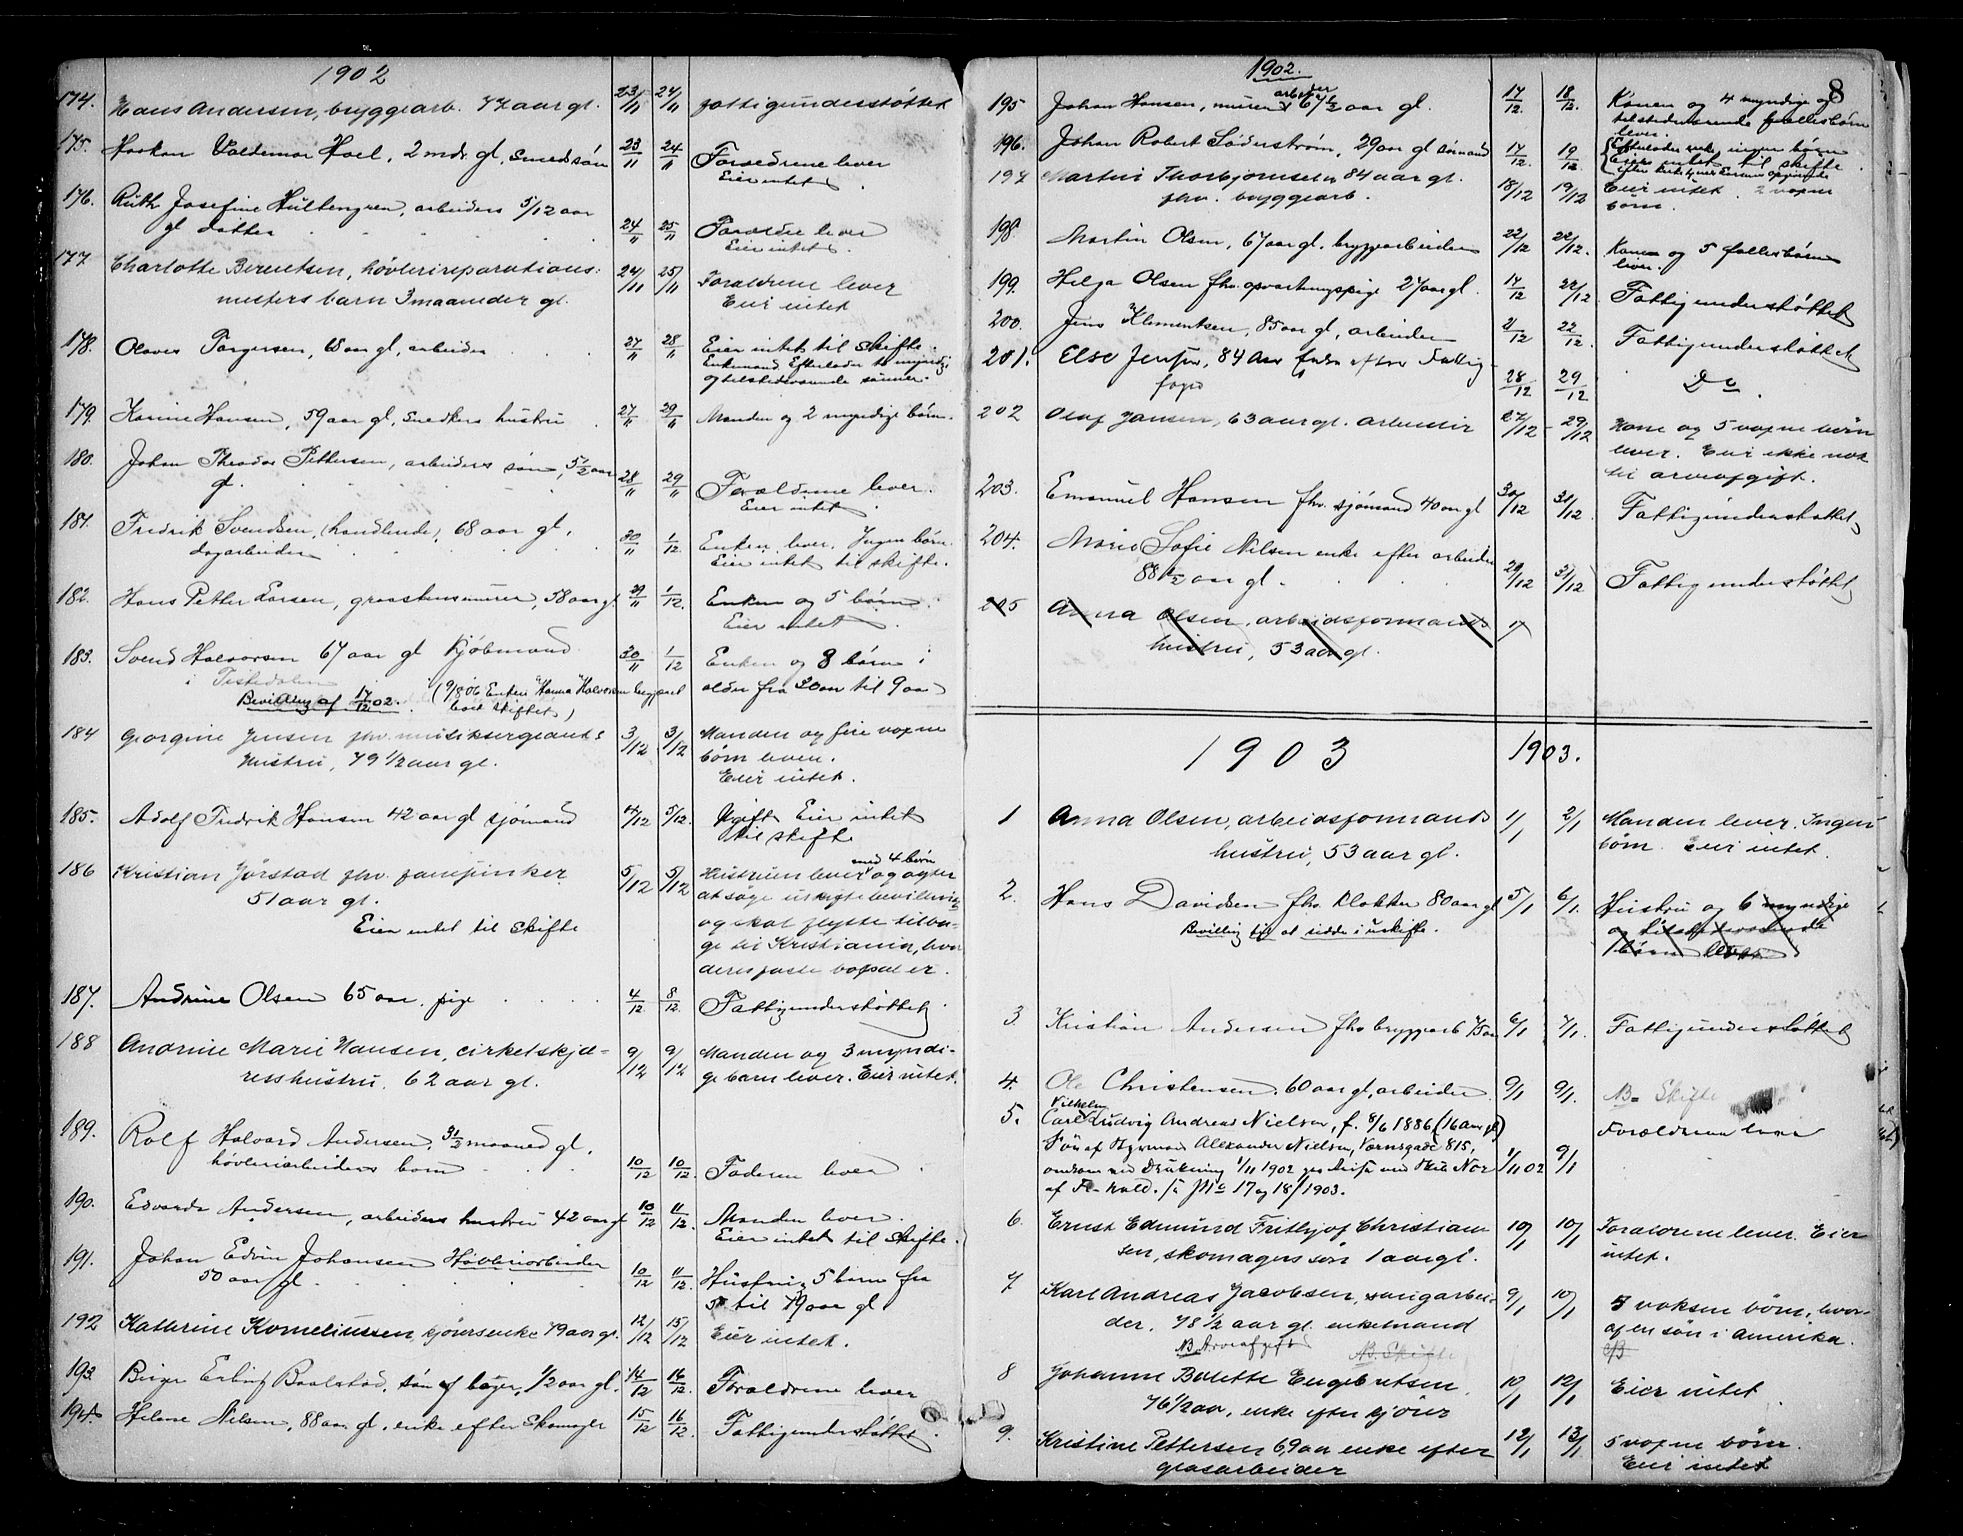 1902
174. Hans Andersen, bryggearb. 77 aar gl. 23/11 24/11 fattigunderstøttet
175. Haakon Valdemar Hoel, 2 mdr. gl, smeds søn 23/11 24/11 Forældrene lever
Eier intet
176. Ruth Josefine Hultengren, arbeiders 5/12 aar
gl datter 24/11 25/11 Forældrene lever
Eier intet.
177. Charlotte Berentsen, høvlerireparations-
mesters barn 3 maaneder gl. 24/11 25/11 Forældrene lever
Eier intet
178. Olaves Torgersen, 68 aar gl, arbeider 27/11 28/11 Eier intet til skifte.
Enkemand. Efterlader to myndige
og tilstedeværende sønner.
179. Karine Hansen, 59 aar gl, snedkers hustru 27/11 29/11 Manden og 2 myndige børn.
180. Johan Theodor Pettersen, arbeiders søn, 5 1/2 aar
gl. 28/11 29/11 Forældrene lever.
Eier intet.
181. Fredrik Svendsen, (handlende), 68 aar gl,
dagarbeider 30/11 1/12 Enken lever. Ingen børn.
Eier intet til skifte.
182. Hans Petter Larsen, graastensmurer, 58 aar gl. 29/11 1/12 Enken og 5 børn.
Eier intet.
183. Svend Halvorsen 67 aar gl Kjøbmand 30/11 1/12 Enken og 8 børn i
i Tistedalen alder fra 30 aar til 9 aar
Bevilling af 17/12 02. (9/8 06 Enken Hanna Halvorsen begjært
holdt skiftet)
184 Georgine Jensen fhv. musiksergeants 3/12 3/12 Manden og fire voxne
hustru, 79 1/2 aar gl. børn lever.
Eier intet.
185. Adolf Fredrik Hansen 42 aar gl sjømand 4/12 5/12. Ugift. Eier intet
til skifte
186 Kristian Jørstad fhv. 5/12 5/12 Hustruen lever med 4 børn og agter
51 aar gl. at søge uskiftebevilling
Eier intet til skifte og skal flytte tilba-
ge til Kristiania, hvor
deres faste bopæl er.
187. Andrine Olsen 65 aar, pige 4/12 8/12 Fattigunderstøttet
188 Andrine Marie Hansen, cirkelskjæ-
rershustru, 62 aar gl. 9/12 9/12 Manden og 3 myndi-
ge barn lever. Eier intet.
189. Rolf Halvard Andersen, 3 1/2 maaned gl,
høvleriarbeiders barn 10/12 10/12 Faderen lever
190. Edvarda Andersen, arbeiders hustru 42 aar gl 10/12 11/12. Manden lever.
Eier intet til skifte.
191. Johan Edvin Johansen Høvleriarbeider
50 aar gl. 10/12 11/12. Hustru, 5 børn fra
5 til 19 aar gl
192 Kathrine Korneliussen, kjørersenke 79 aar gl. 12/12 15/12 Eier intet.
193. Birger Erling Baalstad, søn af bager, 1/2 aar gl. 14/12 16/12. Forældrene lever
194. Helene Nilsen, 88 aar gl, enke efter Skomager 15/12 16/12. Fattigunderstøttet
8
1902.
195 Johan Hansen, murerarbeider 67 1/2 aar gl. 17/12. 18/12. Konen og 4 myndige og
tilstedeværende fællesbørn
lever.
196. Johan Robert Söderstrøm, 29 aar gl sømand 17/12. 19/12 Efterlader enke, ingen børn
Eier intet til skifte
197 Martin Thorbjørnsen 84 aar gl.
fhv. bryggearb. 18/12 19/12 Eier intet. 2 voxne
børn.
198. Martin Olsen, 67 aar gl. bryggearbeider 22/12 22/12. Konen og 5 fællesbørn
lever.
199. Helga Olsen fhv. opvartningspige 27 aar gl. 17/12 22/12 Fattigunderstøttet
200. Jens Klementsen, 85 aar gl, arbeider 21/12 22/12. Fattigunderstøttet
201. Else Jensen, 84 Aar Enke efter Fattig-
foged 28/12 29/12 Do
202 Olaf Jansen, 63 aar gl. arbeider 27/12 29/12 Kone og 5 voxne børn
lever. Eier ikke nok
til arveafgift.
203. Emanuel Hansen fhv. sjømand 40 aar gl 30/12 31/12. Fattigunderstøttet
204. Marie Sofie Nilsen enke efter arbeider
88 1/2 aar gl. 29/12 31/12 Fattigunderstøttet
205 Anna Olsen, arbeidsformands
hustru, 53 aar gl.
1903 1903.
1 Anna Olsen, arbeidsformands 1/1 2/1 Manden lever. Ingen
hustru, 53 aar gl. børn. Eier intet.
2. Hans Davidsen fhv. klokker 80 aar gl 5/1 6/1. Hustru og 6 myndige
Bevilling til at sidde i uskifte. og tilstedeværende
børn lever
3 Kristian Andersen fhv bryggearb 75 aar 6/1 7/1. Fattigunderstøttet
4. Ole Christensen, 60 aar gl, arbeider 9/1 9/1. NB Skifte
5. Carl Vilhelm Ludvig Andreas Nielsen, f. 8/6 1886 (16 Aar gl) Forældrene lever
Søn af Styrmand Alexander Nielsen, Værnsgade 815,
omkom ved Drukning 1/11 1902 1/11 02 9/1
17 og 18/1903.
6. Ernst Edmund Frithjof Christian- 10/1 10/1 Forældrene lever. Eier
sen, skomagers søn 1 aar gl. intet.
7 Karl Andreas Jacobsen, saugarbei- 9/1 10/1 5 voksne børn, hvor-
der, 78 1/2 aar gl. enkemand af en søn i Amerika.
NB Arveafgift NB. Skifte
8 Johanne Bolette Engebretsen, 10/1 12/1 Eier intet
76 1/2 aar, enke efter kjører
9. Kristine Pettersen 69 aar enke efter 12/1 13/1 5 voxne børn.
glasarbeider Eier intet